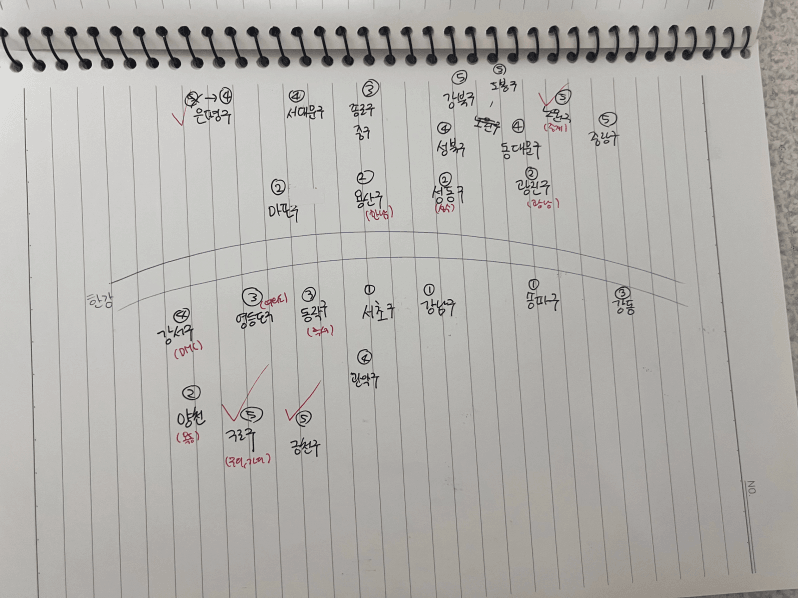 ⑤→④
은평구
④
서대문구
③
종로구
중구
⑤
강북구
⑤
도봉구
,
노원구
⑤
노원구
(중계)
⑤
중랑구
④
성북구
④
동대문구
②
마포구
②
용산구
(한남)
②
성동구
②
광진구
(광남)
한강
④
강서구
(DMC)
③
영등포구
(여의도)
③
동작구
①
서초구
①
강남구
①
송파구
③
강동
④
관악구
②
양천
(목동)
⑤
구로구
⑤
금천구
NO.